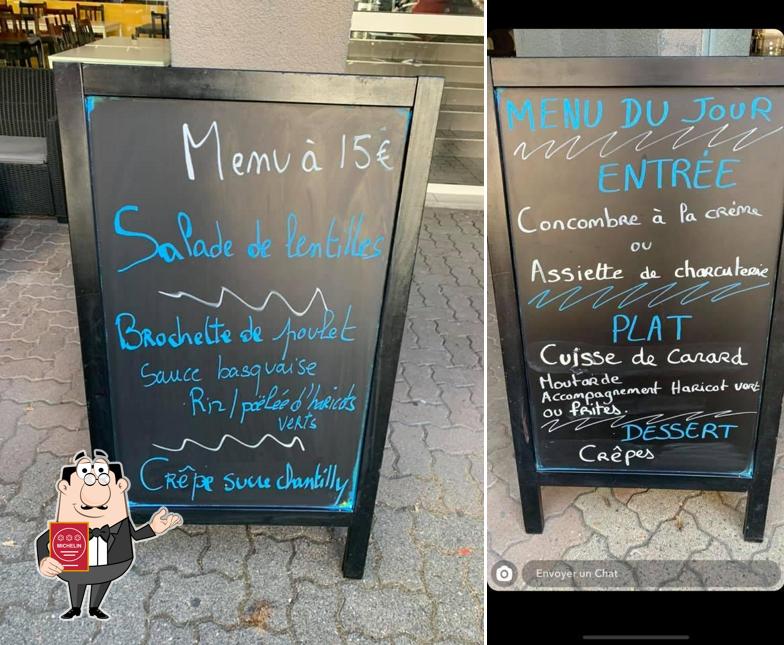 Menu à 15€
Salade de lentilles
Brochette de poulet
Sauce basquaise
Riz/poêlée d'haricots
verts
Crêpe sucre chantilly
MICHELIN
MENU DU JOUR
ENTRÉE
Concombre à la crème
ou
Assiette de charcuterie
PLAT
Cuisse de Canard
Moutarde
Accompagnement Haricot vert
ou frites.
DESSERT
Crêpes
Envoyer un Chat